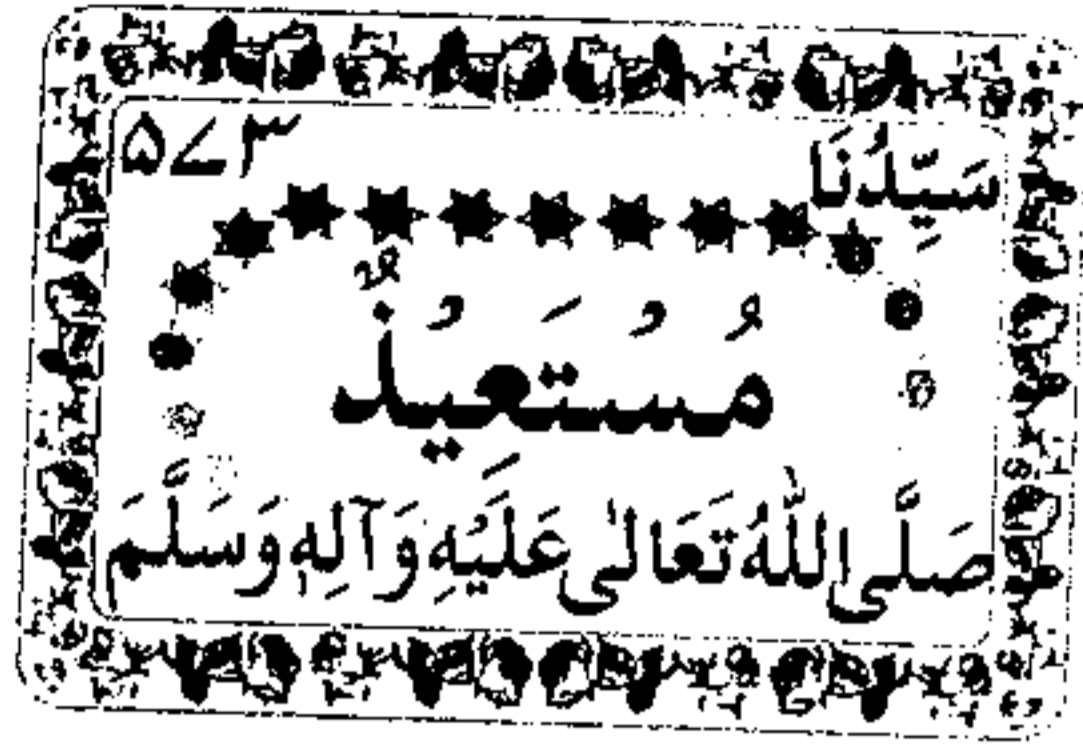 سَيِّدُنَا ۵۷۳
مُسْتَعِيْذٌ
صَلَّى اللّٰهُ تَعَالٰى عَلَيْهِ وَآلِهٖ وَسَلَّمَ